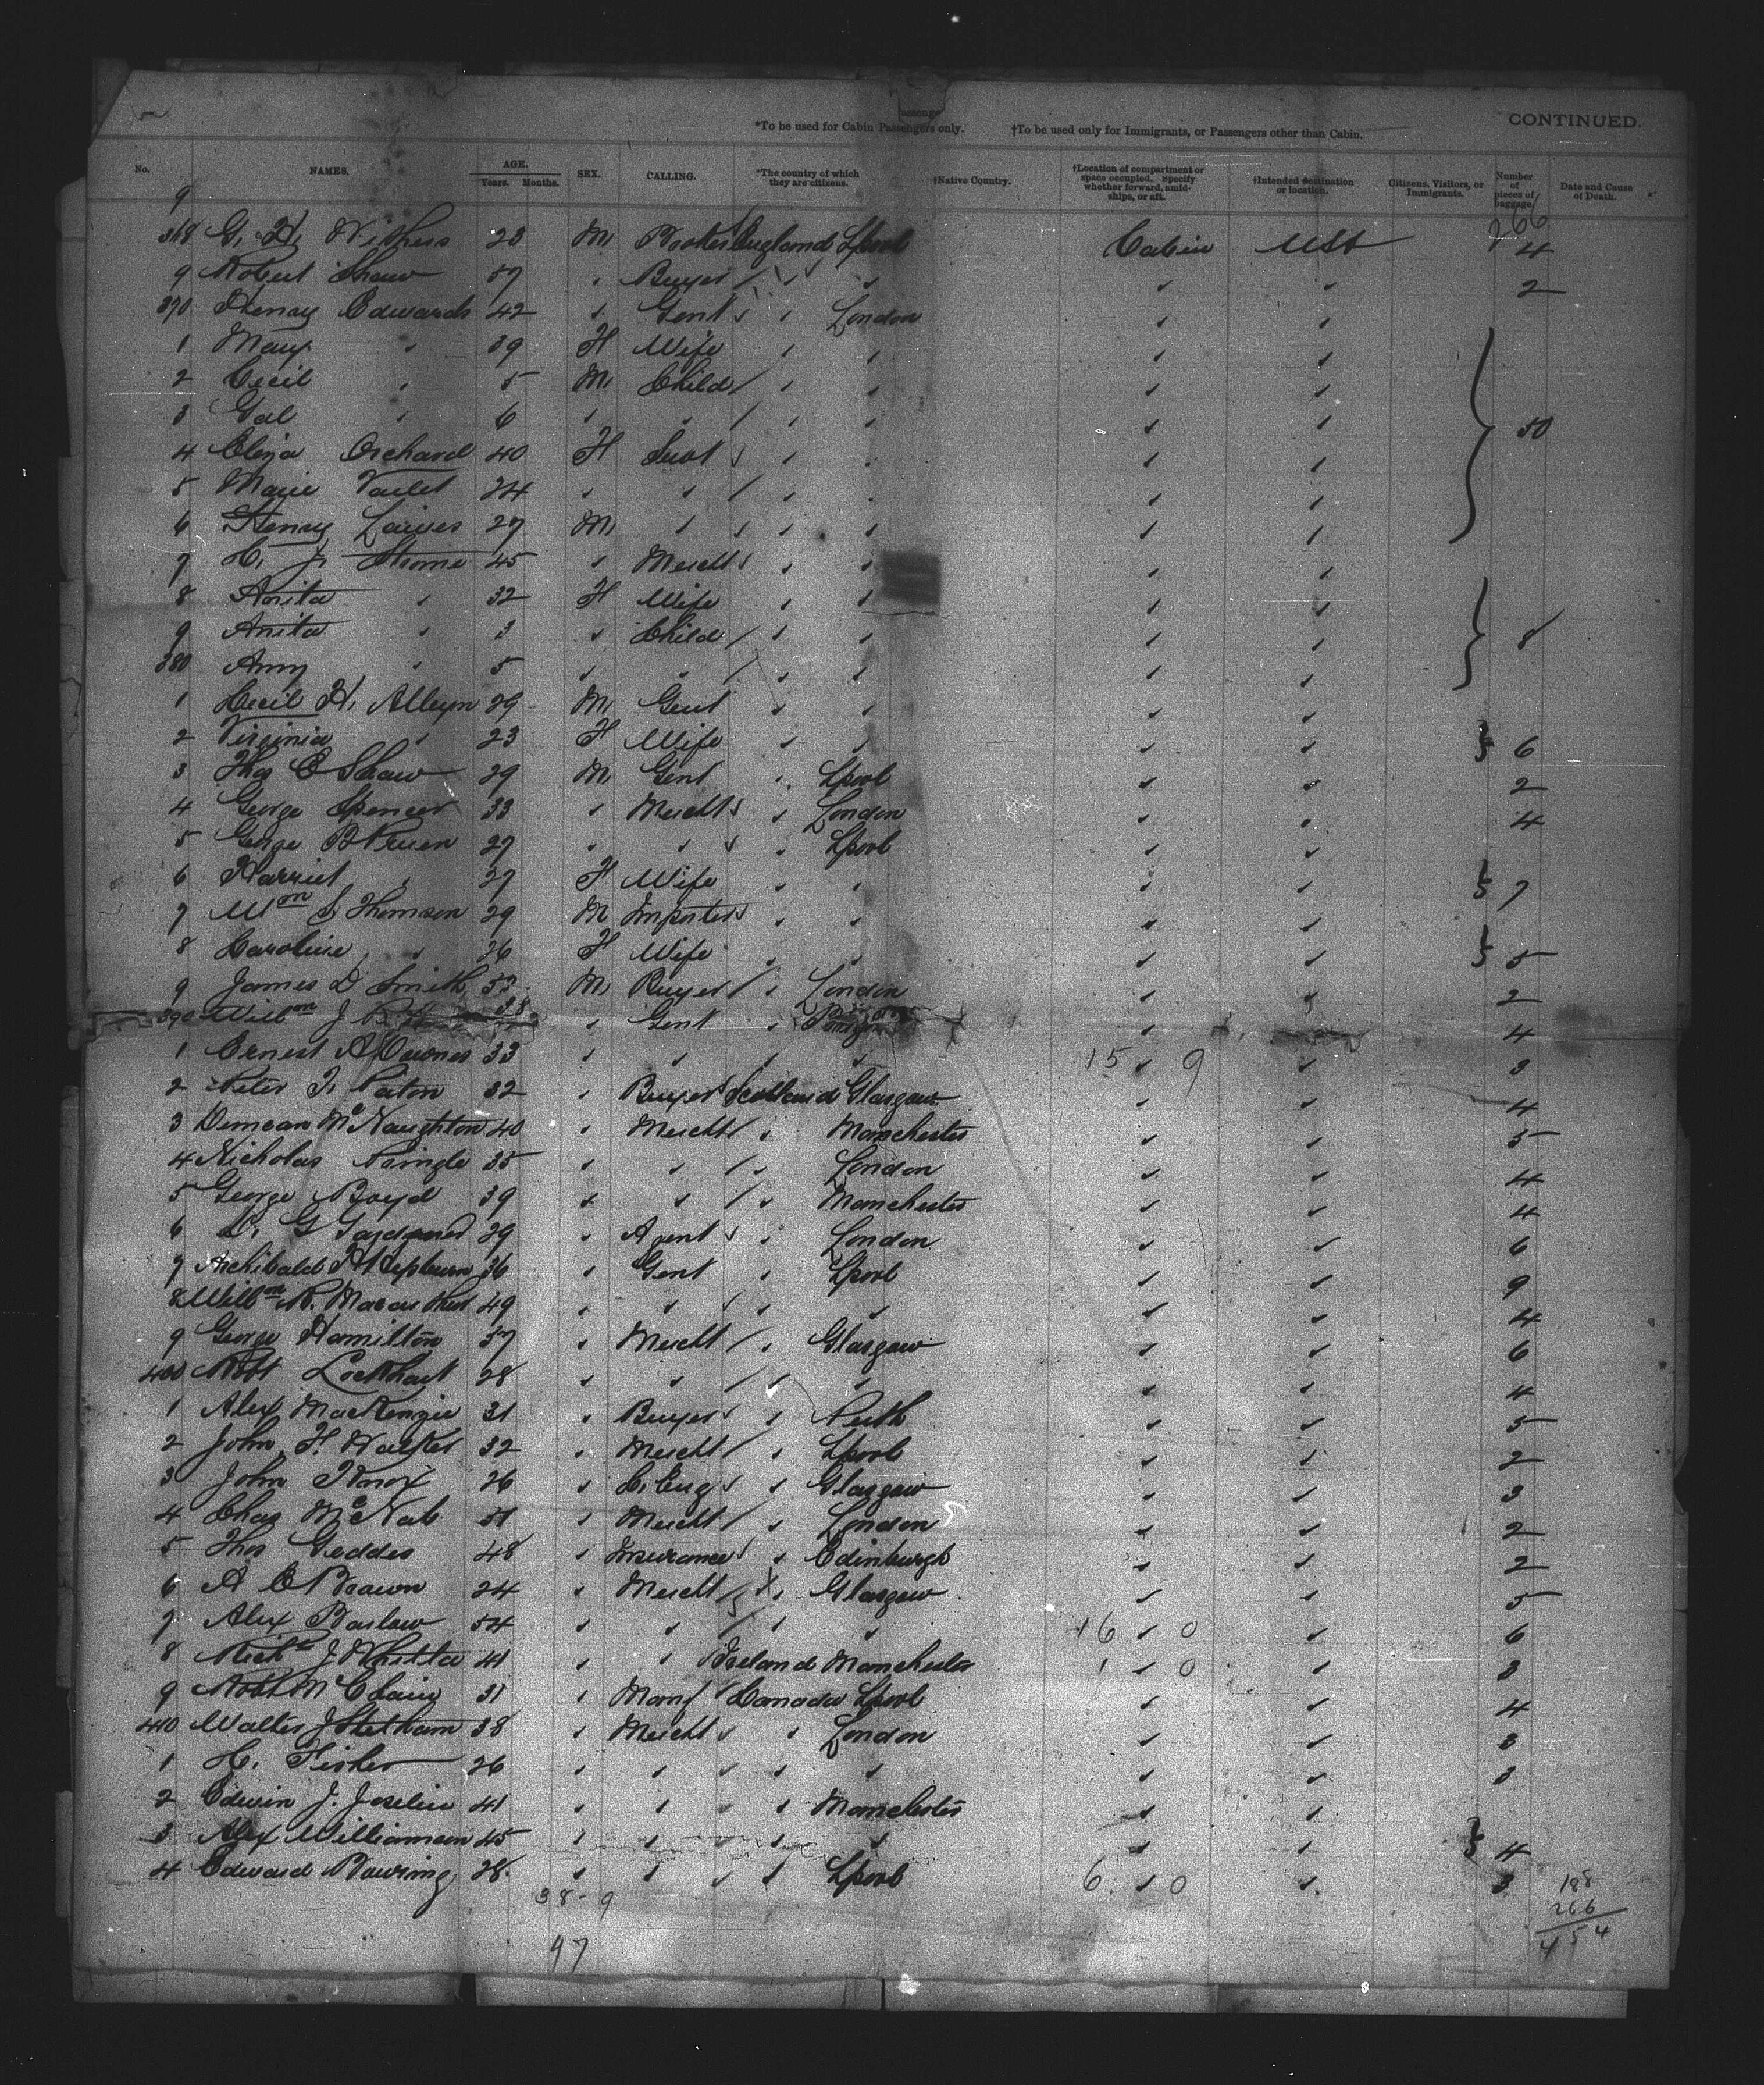 Passenge
*To be used for Cabin Passengers only. †To be used only for Immigrants, or Passengers other than Cabin. CONTINUED.
No. NAMES. AGE. Years. Months. SEX. CALLING. *The country of which they are citizens. †Native Country. †Location of compartment or space occupied. Specify whether forward, amidships, or aft. †Intended destination or location. Citizens, Visitors, or Immigrants. Number of pieces of baggage. Date and Cause of Death.
9 266
368 G. H. Withers 23 M Broker England Lpool Cabin USA 4
9 Robert Shaw 57 " Buyer " " " " 2
370 Henry Edwards 42 " Gent " London " "
1 Mary " 39 F Wife " " " "
2 Cecil " 5 M Child " " " "
3 Gal " 6 " " " " " " 50
4 Eliza Orchard 40 F Servt " " " "
5 Marie Varlet 24 " " " " " "
6 Henry 27 M " " " " "
7 H. J. 45 " Mercht " " " "
8 Anita " 32 F Wife " " " "
9 Anita " 3 " Child " " " " 8
380 Amy " 5 " " " " " "
1 Cecil H. Alleyn 29 M Gent " " " "
2 Virginia " 23 F Wife " " " " 6
3 Thos C Shaw 29 M Gent " Lpool " " 2
4 George Spencer 33 " Mercht " London " " 4
5 George 27 " " " Lpool " "
6 Harriet " 27 F Wife " " " " 7
7 Wm S Thomson 29 M Importer " " " "
8 Caroline " 26 F Wife " " " " 5
9 James D Smith 53 M Buyer " London " " 2
390 Willm J 38 " Gent " " " 4
1 Ernest A Downes 33 " " " " 15 " 9 " 3
2 Peter T. Paton 32 " Buyer Scotland Glasgow " " 4
3 Duncan McNaughton 40 " Mercht " Manchester " " 5
4 Nicholas Pringle 35 " " " London " " 4
5 George Boyd 39 " " " Manchester " " 4
6 G 29 " Agent " London " " 6
7 Archibald Hepburn 36 " Gent " Lpool " " 9
8 Willm R. Macarthur 49 " " " " " " 4
9 George Hamilton 37 " Mercht " Glasgow " " 6
400 Robt Lockhart 28 " " " " " " 4
1 Alex MacKenzie 31 " Buyer " Perth " " 5
2 John F. Walker 32 " Mercht " Lpool " " 2
3 John Knox 26 " C. Eng " Glasgow " " 3
4 Chas McNab 51 " Mercht " London " " 2
5 Thos Geddes 48 " Insurance " Edinburgh " " 2
6 A C Brown 24 " Mercht " Glasgow " " 5
7 Alex Barlow 54 " " " " 16 " 0 " 6
8 Michl J Whitta 41 " " Ireland Manchester 1 " 0 " 3
9 Robt McClain 31 " Manf Canada Lpool " " 4
410 Walter J Stetham 38 " Mercht " London " " 3
1 H. Fisher 26 " " " " " " 3
2 Edwin J. Joselin 41 " " " Manchester " "
3 Alex Williamson 45 " " " " " " 4
4 Edward Bowring 28 " " " Lpool 6 " 0 " 3
38-9
47
188
266
454